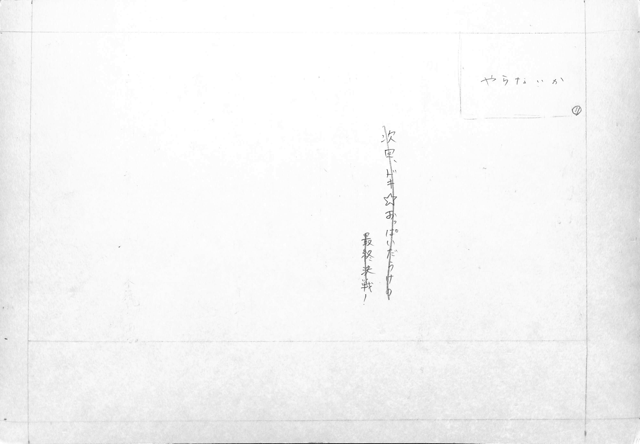 やらないか
次回、ドキ☆おっぱいだらけの
最終決戦!